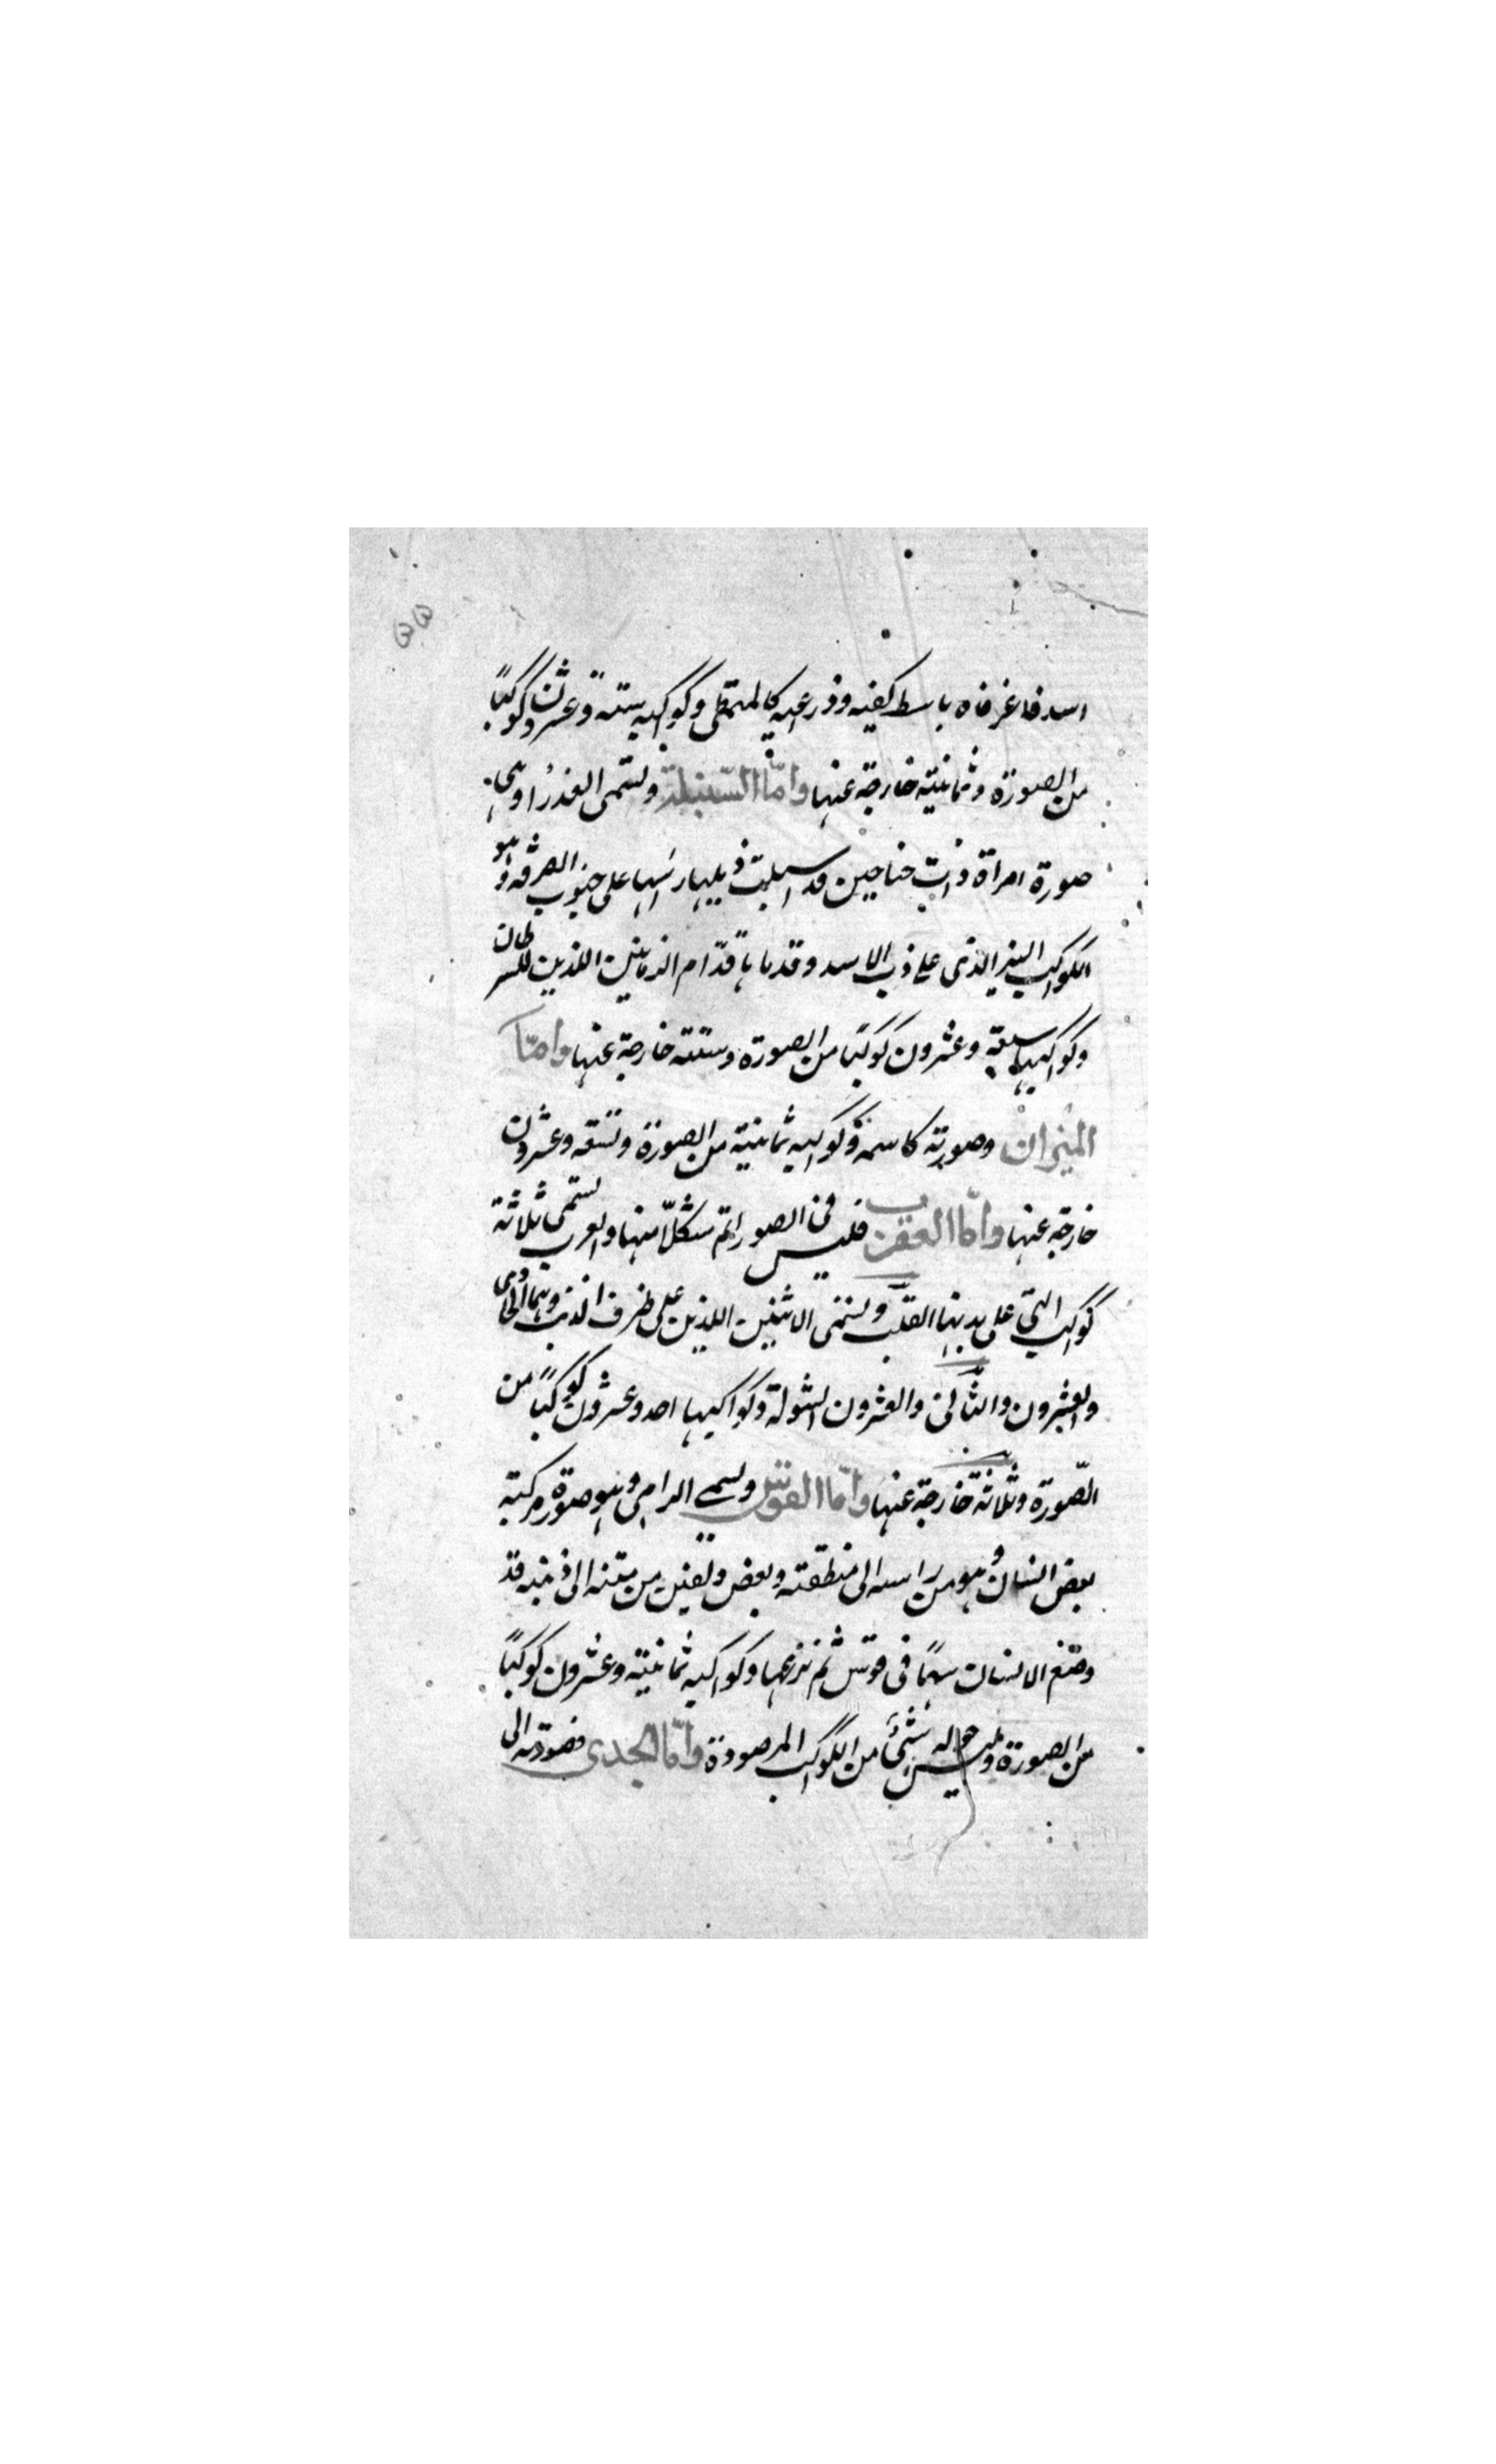 اسد فاغر فاه باسط كفيه وذرعيه كالمتمطى وكواكبه ستة وعشرون كوكبًا
من الصورة وثمانية خارجة عنها وامّا السّنبلة وتسمى العذرا وهى
صورة امراة ذات جناحين قد اسبلت ذيلها راسها على جنوب الصرفة وهو
الكوكب النير الذى على ذنب الاسد وقدماها قدّام الزبانين اللذين للسرطان
وكواكبها ستة وعشرون كوكبًا من الصورة وستة خارجة عنها وامّا
الميزان وصورته كاسمه وكواكبه ثمانية من الصورة وتسعة وعشرون
خارجة عنها وامّا العقرب فليس فى الصور اتم شكلًا منها والعرب تسمى ثلاثة
كواكب التى على بدنها القلب وتسمى الاثنين اللذين على طرف الذنب وهما الحادى
والعشرون والثانى والعشرون الشولة وكواكبها احد وعشرون كوكبًا من
الصّورة وثلاثة خارجة عنها وامّا القوس ويسمى الرامى وهو صورة مركبة
بعض انسان وهو من راسه الى منطقته وبعض من متنه الى ذنبه قد
وضع الانسان سهمًا فى قوس ثم نزعها وكواكبه ثمانية وعشرون كوكبًا
من الصورة وليس حوله شئ من الكواكب المرصودة وامّا الجدى فصورته الى